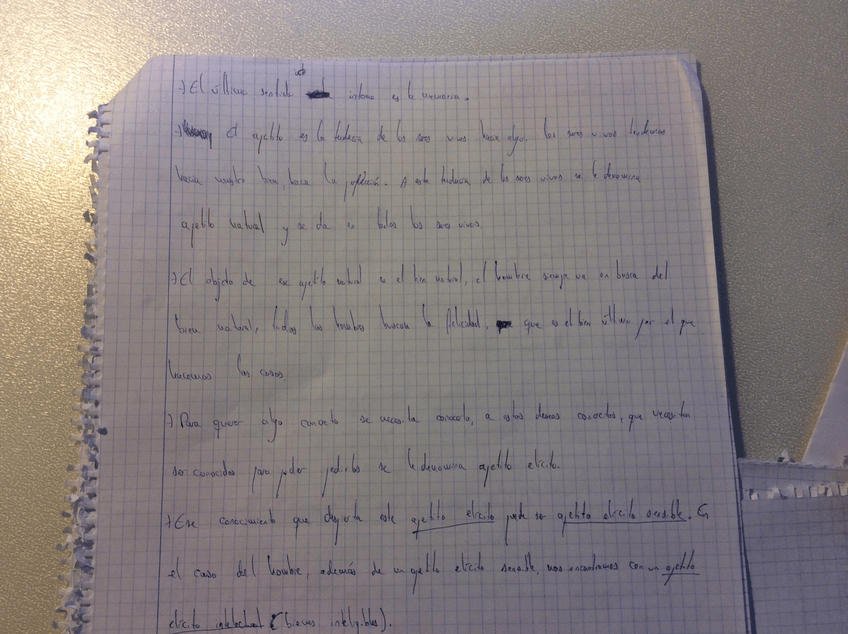 -) El último sentido interno es la memoria.
-) El apetito es la tendencia de los seres vivos hacia algo. Los seres vivos tendemos
hacia nuestro bien, hacia la perfección. A esta tendencia de los seres vivos se le denomina
apetito natural y se da en todos los seres vivos.
-) El objeto de ese apetito natural es el bien natural, el hombre siempre va en busca del
bien natural, todos los hombres buscan la felicidad, que es el bien último por el que
hacemos las cosas.
-) Para querer algo concreto se necesita conocerlo, a estos deseos concretos, que necesitan
ser conocidos para poder pedirlos se le denomina apetito elícito.
-) Ese conocimiento que despierta este apetito elícito puede ser apetito elícito sensible. En
el caso del hombre, además de un apetito elícito sensible, nos encontramos con un apetito
elícito intelectual (bienes inteligibles).